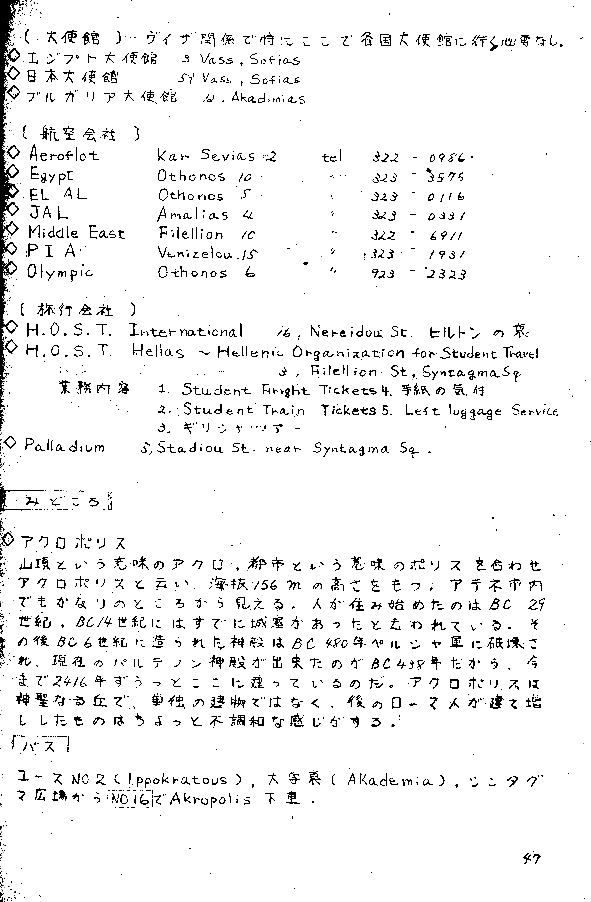 ( 大使館 ) ヴィザ関係で特にここで各国大使館に行く必要なし.
◇ エジプト大使館 3 Vass, Sofias
◇ 日本大使館 59 Vass, Sofias
◇ ブルガリア大使館 Akadimias
( 航空会社 )
◇ Aeroflot Kar Sevias 2 tel 322 - 0986
◇ Egypt Othonos 10 〃 323 - 3575
◇ EL AL Othonos 5 〃 323 - 0116
◇ JAL Amalias 4 〃 323 - 0331
◇ Middle East Filellion 10 〃 322 - 6911
◇ P I A Venizelou 15 〃 323 - 1931
◇ Olympic Othonos 6 〃 923 - 2323
( 旅行会社 )
◇ H.O.S.T. International 16, Nereidou St. ヒルトンの裏
◇ H.O.S.T. Hellas ~ Hellenic Organization for Student Travel
3, Filellion St, Syntagma Sq
業務内容 1. Student Fright Tickets 4. 手紙の気付
2. Student Train Tickets 5. Left luggage Service
3. ギリシャツアー
◇ Palladium 5, Stadiou St. near Syntagma Sq.
みどころ
◇ アクロポリス
山頂という意味のアクロ, 都市という意味のポリスを合わせ
アクロポリスと云い, 海抜156mの高さをもつ. アテネ市内
でもかなりのところから見える. 人が住み始めたのはBC 29
世紀, BC14世紀にはすでに城塞があったと云われている. そ
の後BC6世紀に造られた神殿はBC480年ペルシャ軍に破壊さ
れ, 現在のパルテノン神殿が出来たのがBC438年だから, 今
まで2416年ずうっとここに建っているのだ. アクロポリスは
神聖なる丘で, 単独の建物ではなく, 後のローマ人が建て増
ししたものはちょっと不調和な感じがする.
バス
ユースNO2(Ippokratous), 大学系(AKademia), シンタグ
マ広場からNO16でAkropolis下車.
47